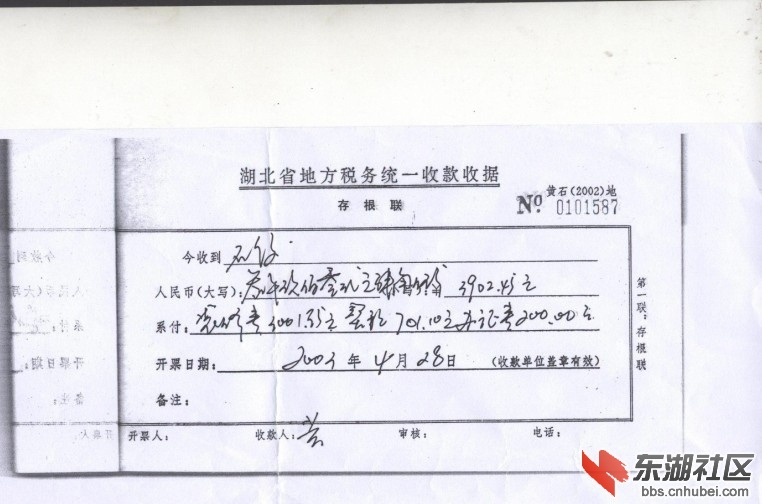 湖北省地方税务统一收款收据
黄石(2002)地
存根联
№ 0101587
今收到
人民币(大写): 3902.45元
系付: 契税 701.10元 办证费200.00元
开票日期: 2003年4月28日 (收款单位盖章有效)
备注:
开票人: 收款人: 黄 审核: 电话:
第一联:存根联
今收到
人民币(大写)
系付:
开票日期:
备注:
开票人:
东湖社区
bbs.cnhubei.com